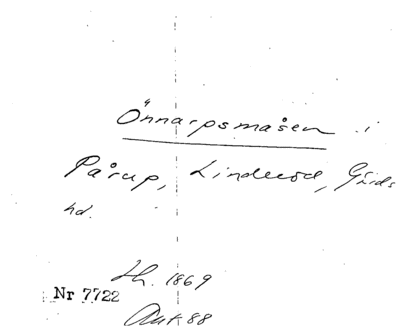 Önnarpsmåsen i
Pårup, Linderöd, Gärds
hd.
H. 1869
Nr 7722
Akt 88